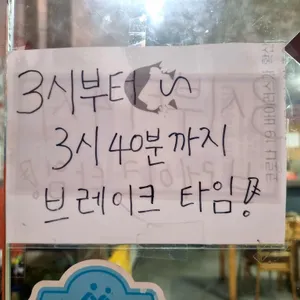 3시부터 ~
3시 40분까지
브레이크 타임!